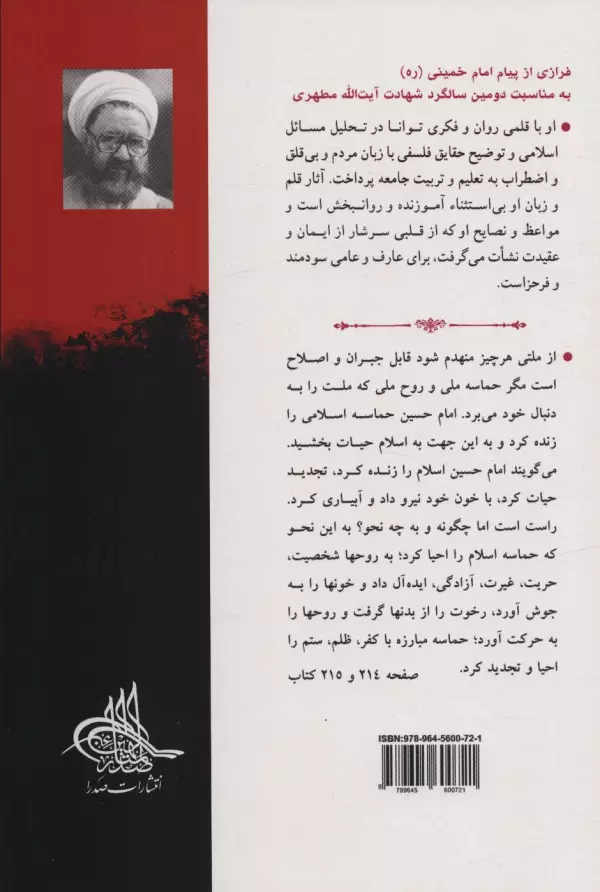 فرازی از پیام امام خمینی (ره)
به مناسبت دومین سالگرد شهادت آیت‌الله مطهری
● او با قلمی روان و فکری توانا در تحلیل مسائل
اسلامی و توضیح حقایق فلسفی با زبان مردم و بی‌قلق
و اضطراب به تعلیم و تربیت جامعه پرداخت. آثار قلم
و زبان او بی‌استثناء آموزنده و روانبخش است و
مواعظ و نصایح او که از قلبی سرشار از ایمان و
عقیدت نشأت می‌گرفت، برای عارف و عامی سودمند
و فرحزاست.
● از ملتی هرچیز منهدم شود قابل جبران و اصلاح
است مگر حماسه ملی و روح ملی که ملت را به
دنبال خود می‌برد. امام حسین حماسه اسلامی را
زنده کرد و به این جهت به اسلام حیات بخشید.
می‌گویند امام حسین اسلام را زنده کرد، تجدید
حیات کرد، با خون خود نیرو داد و آبیاری کرد.
راست است اما چگونه و به چه نحو؟ به این نحو
که حماسه اسلام را احیا کرد؛ به روحها شخصیت،
حریت، غیرت، آزادگی، ایده‌آل داد و خونها را به
جوش آورد، رخوت را از بدنها گرفت و روحها را
به حرکت آورد؛ حماسه مبارزه با کفر، ظلم، ستم را
احیا و تجدید کرد.
صفحه ۲۱٤ و ۲۱٥ کتاب
انتشارات صدرا
ISBN:978-964-5600-72-1
9 789645 600721